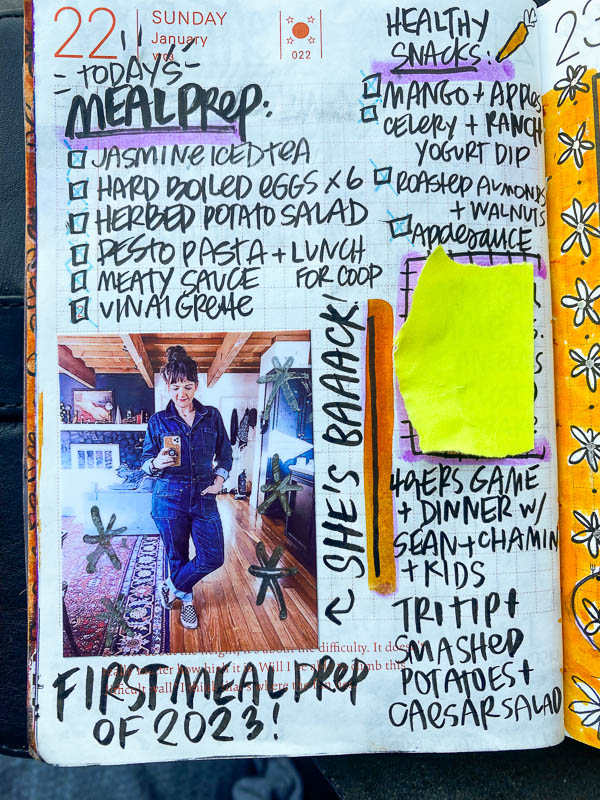 22
SUNDAY
January
W03
022
TODAY'S
MEAL PREP:
JASMINE ICED TEA
HARD BOILED EGGS x 6
HERBED POTATO SALAD
PESTO PASTA + LUNCH
FOR COOP
MEATY SAUCE
VINAIGRETTE
SHE'S BAAACK!
FIRST MEAL PREP
OF 2023!
it's about the difficulty. It
matter how
Will I
climb this
wall?
where
HEALTHY
SNACKS:
MANGO + APPLES
CELERY + RANCH
YOGURT DIP
ROASTED ALMONDS
+ WALNUTS
APPLESAUCE
49ERS GAME
+ DINNER W/
SEAN + CHAMIN
+ KIDS
TRI TIP +
SMASHED
POTATOES +
CAESAR SALAD
23